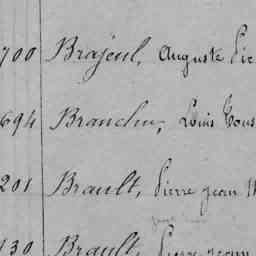 700 Brajeul, Auguste Pie
694 Brandin, Louis Tous
201 Brault, Pierre Jean M
130 Brault, Pierre Jean